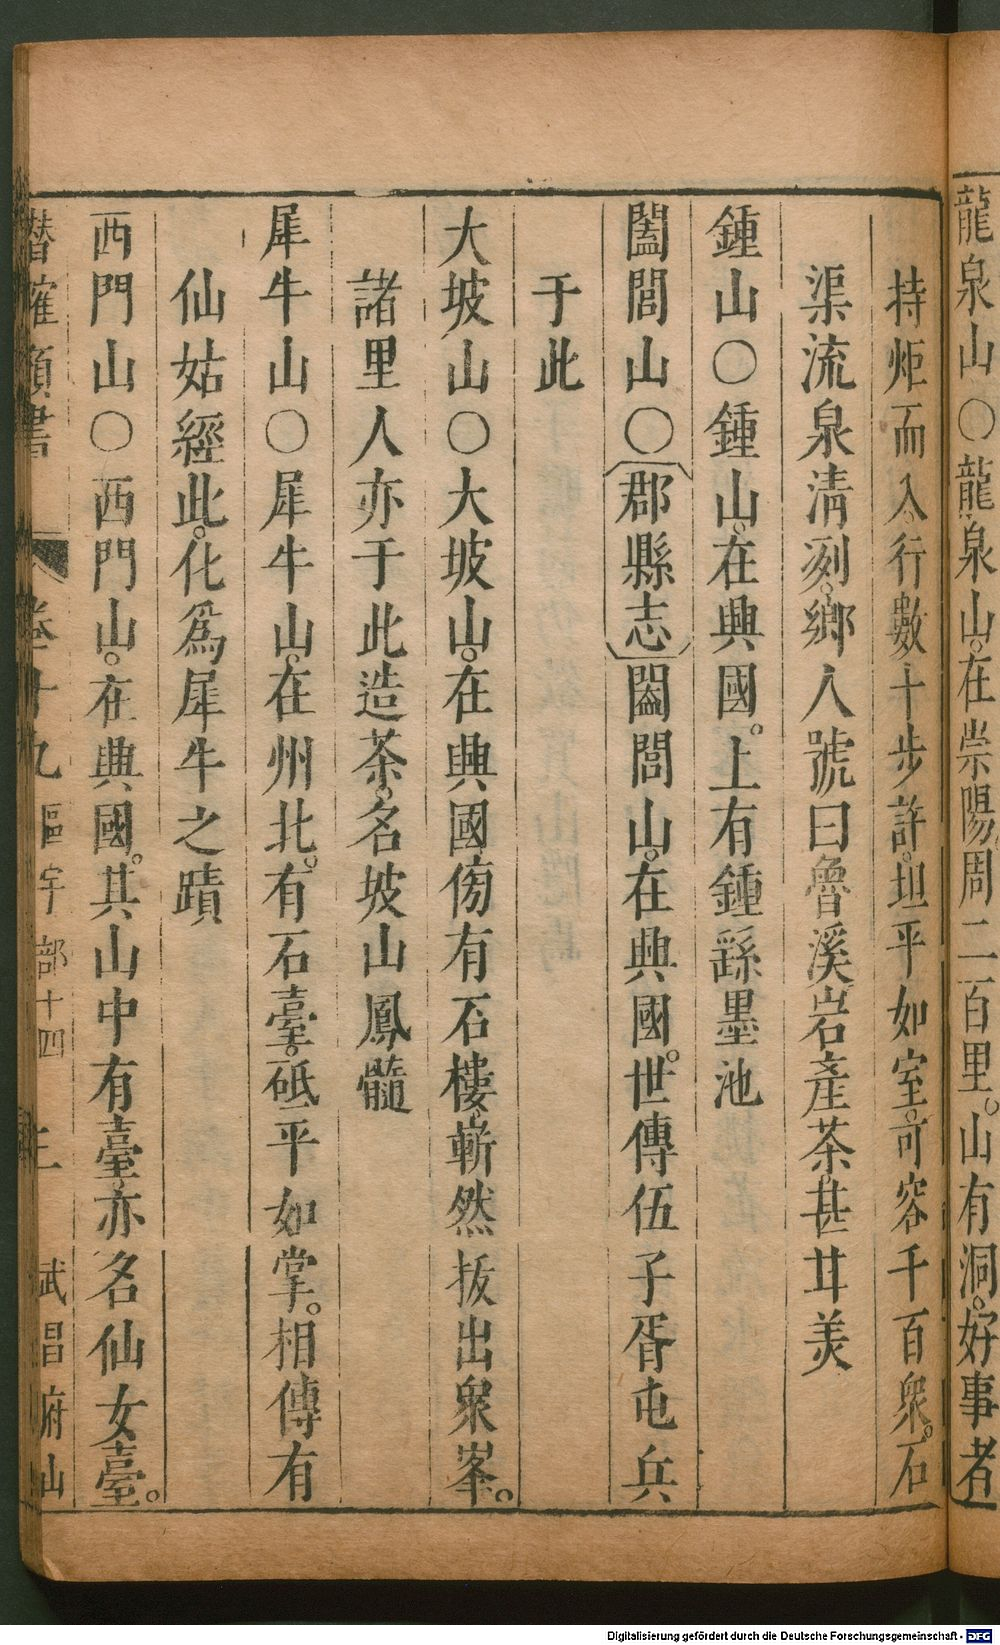 龍泉山〇龍泉山。在崇陽周二百里。山有洞。好事者
持炬而入。行數十步許。坦平如室。可容千百衆。石
渠流泉清冽。鄉人號曰魯溪岩產茶。甚甘美
鍾山〇鍾山。在興國。上有鍾繇墨池
闔閭山〇〔郡縣志〕闔閭山。在興國。世傳伍子胥屯兵
于此
大坡山〇大坡山。在興國傍有石樓。嶄然拔出衆峯。
諸里人亦于此造茶。名坡山鳳髓
犀牛山〇犀牛山。在州北。有石臺。砥平如掌。相傳有
仙姑經此。化爲犀牛之蹟
西門山〇西門山。在興國。其山中有臺。亦名仙女臺。
潛確類書 卷十九 區宇部十四 武昌府山
Digitalisierung gefördert durch die Deutsche Forschungsgemeinschaft - DFG